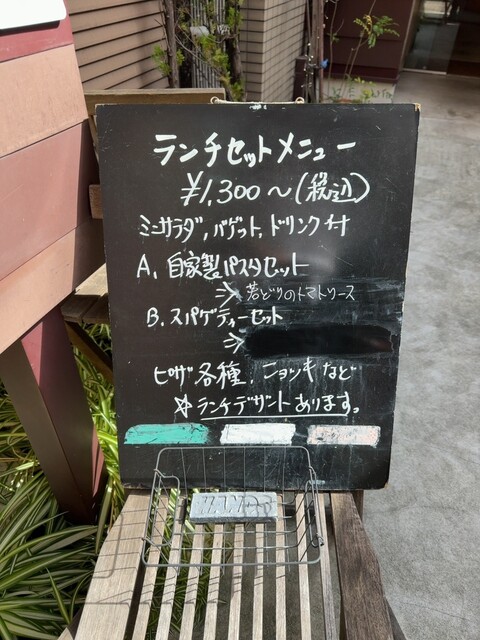 ランチセットメニュー
¥1,300～(税込)
ミニサラダ, バゲット, ドリンク付
A. 自家製パスタセット
⇒ 若どりのトマトソース
B. スパゲティーセット
⇒
ピザ各種, ニョッキなど
☆ランチデザートあります。